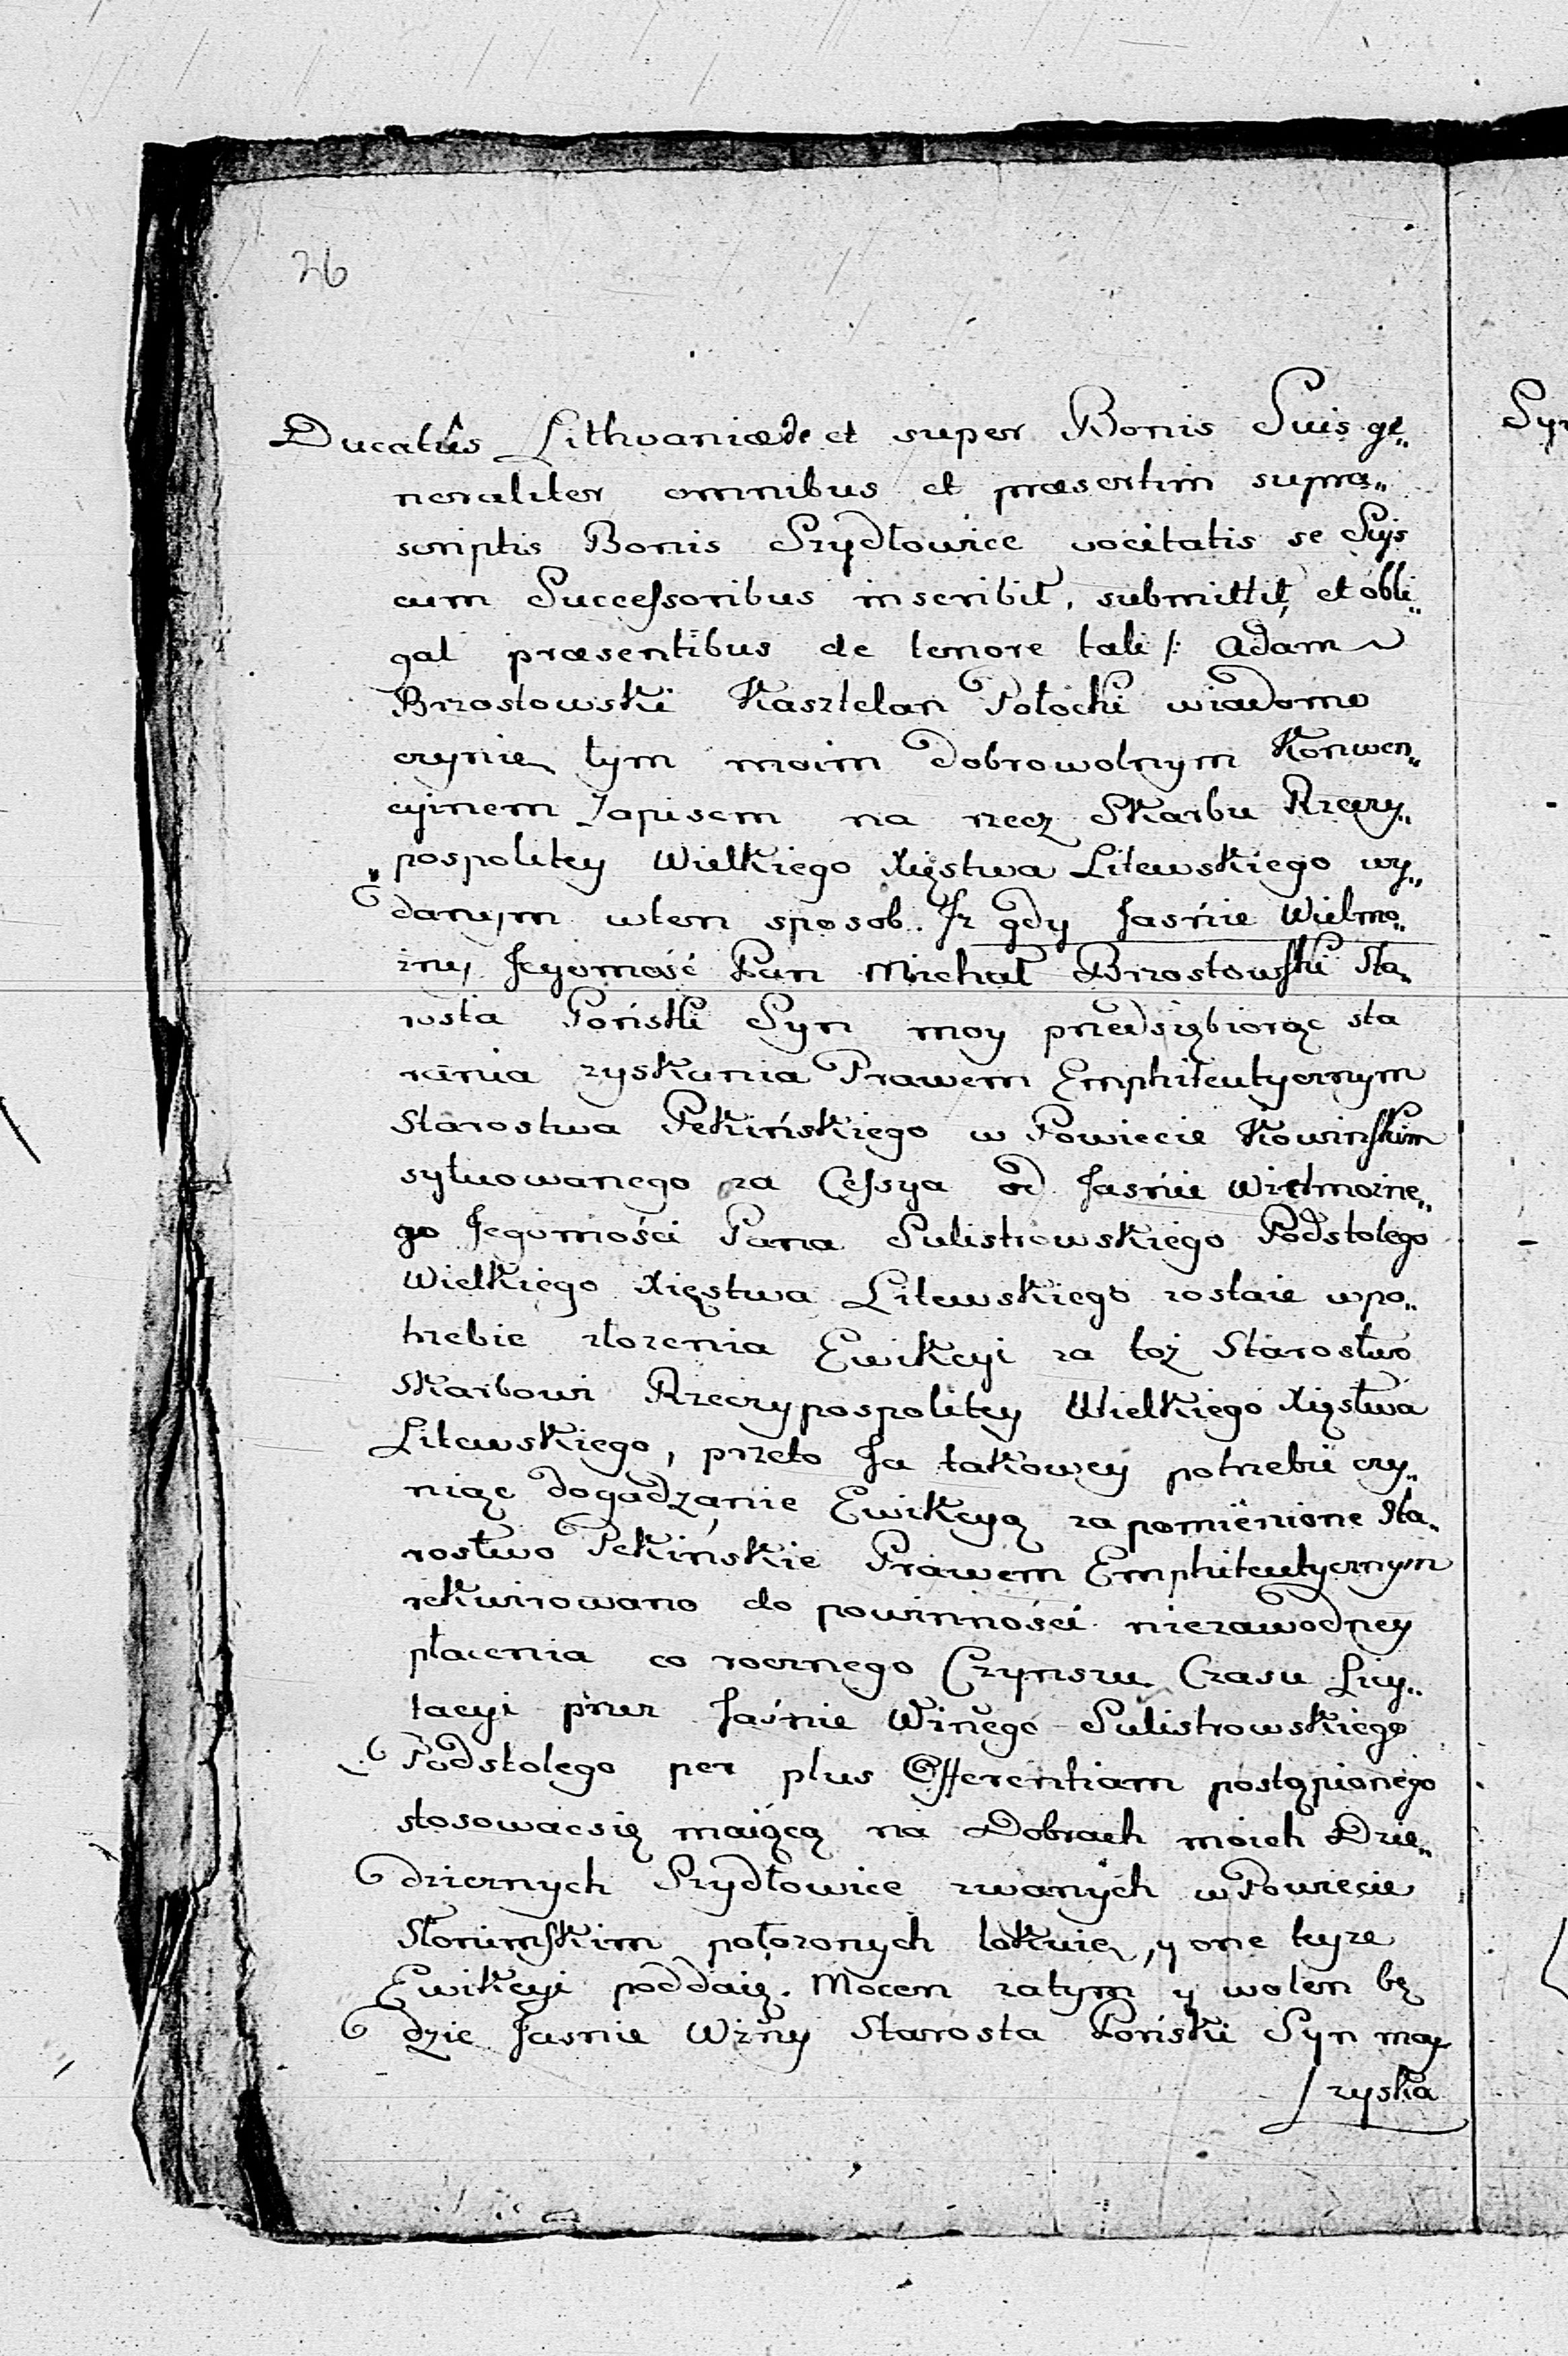 26
Ducatûs Lithvaniæ de et super Bonis Suis ge„
neraliter omnibus et præsertim supra„
scriptis Bonis Szydłowice vocitatis se Suis
cum Successoribus inscribit, submittit, et obli„
gat præsentibus de tenore tali /: Adam
Brzostowski Kasztelan Połocki wiadomo
czynię tym moim dobrowolnym Konwen„
cyinem Zapisem na rzecz Skarbu Rzeczy„
pospolitey Wielkiego Xięstwa Litewskiego wy„
danym wten sposob. Iż gdy Jaśnie Wielmo„
żny Jegomość Pan Michał Brzostowski Sta„
rosta Poński Syn moy przedsiębiorąc sta
rania zyskania Prawem Emphiteutycznym
Starostwa Pekińskiego w Powiecie Kowińskim
sytuowanego za Cessya od Jaśnie Wielmożne„
go Jegomości Pana Sulistrowskiego Podstolego
Wielkiego Xięstwa Litewskiego zostaie wpo„
trzebie złożenia Ewikcyi za toż Starostwo
Skarbowi Rzeczypospolitey Wielkiego Xięstwa
Litewskiego, przeto Ja takowey potrzebie czy„
niąc dogadzanie Ewikcyą za pomienione Sta„
rostwo Pekińskie Prawem Emphiteutycznym
rekwirowano do powinności niezawodney
płacenia co rocznego Czynszu Czasu Licy„
tacyi przez Jaśnie Wiñego Sulistrowskiego
Podstolego per plus Offerentiam postąpionego
stosowacsię maiącą na Dobrach moich Dzie„
dzicznych Szydłowice zwanych w Powiecie
Słonimskim położonych lokuię, y one teyże
Ewikcyi poddaię. Mocen zatym y wolen bę
dzie Jasnie Wzñy Starosta Poński Syn moy
zyska